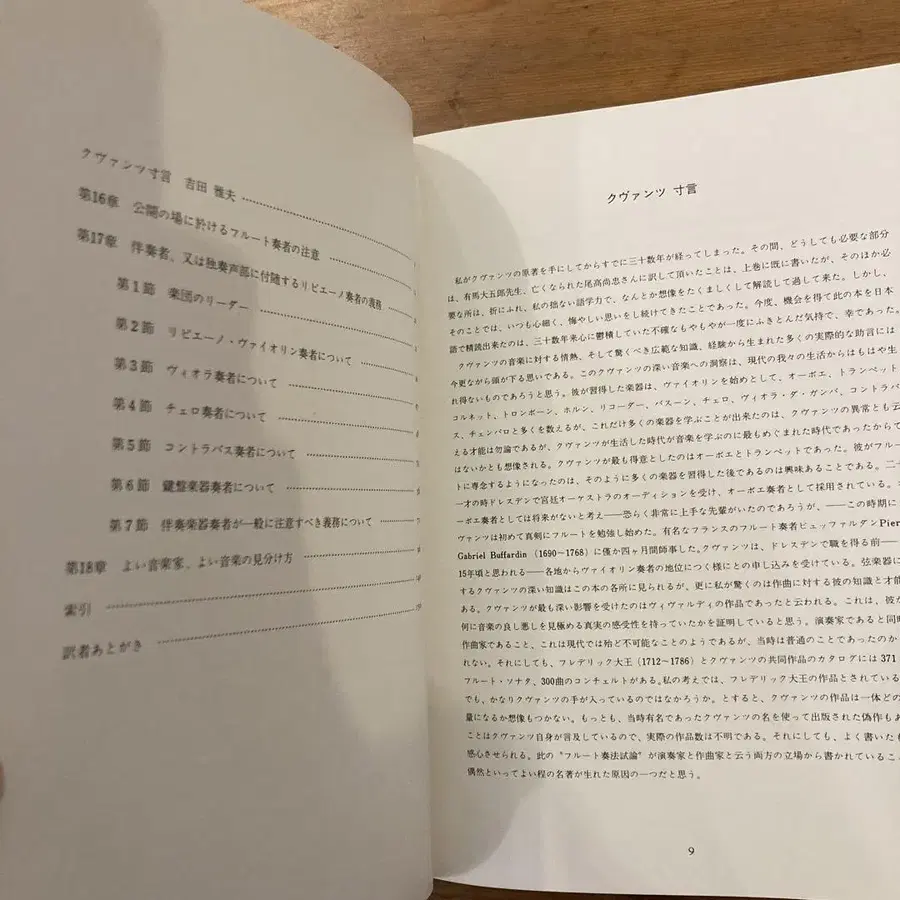 クヴァンツ寸言 吉田 雅夫
第16章 公開の場に於けるフルート奏者の注意
第17章 伴奏者、又は独奏声部に付随するリピエーノ奏者の義務
第1節 楽団のリーダー
第2節 リピエーノ・ヴァイオリン奏者について
第3節 ヴィオラ奏者について
第4節 チェロ奏者について
第5節 コントラバス奏者について
第6節 鍵盤楽器奏者について
第7節 伴奏楽器奏者が一般に注意すべき義務について
第18章 よい音楽家、よい音楽の見分け方
索引
訳者あとがき
クヴァンツ 寸言
私がクヴァンツの原著を手にしてからすでに三十数年が経ってしまった。その間、どうしても必要な部分
は、有馬大五郎先生、亡くなられた尾高尚忠さんに訳して頂いたことは、上巻に既に書いたが、そのほか必
要な所は、折にふれ、私の拙ない語学力で、なんとか想像をたくましくして解読して過して来た。しかし、
そのことでは、いつも心細く、悔やしい思いをし続けてきたことであった。今度、機会を得て此の本を日本
語で精読出来たのは、三十数年来心に鬱積していた不確なもやもやが一度にふきとんだ気持で、幸であった。
クヴァンツの音楽に対する情熱、そして驚くべき広範な知識、経験から生まれた多くの実際的な助言には
今更ながら頭が下る思いである。このクヴァンツの深い音楽への洞察は、現代の我々の生活からはもはや生
れ得ないものであろうと思う。彼が習得した楽器は、ヴァイオリンを始めとして、オーボエ、トランペット
コルネット、トロンボーン、ホルン、リコーダー、バスーン、チェロ、ヴィオラ・ダ・ガンバ、コントラバ
ス、チェンバロと多くを数えるが、これだけ多くの楽器を学ぶことが出来たのは、クヴァンツの異常とも云
える才能は勿論であるが、クヴァンツが生活した時代が音楽を学ぶのに最もめぐまれた時代であったからで
はないかとも想像される。クヴァンツが最も得意としたのはオーボエとトランペットであった。彼がフルー
トに専念するようになったのは、そのように多くの楽器を習得した後であるのは興味あることである。二十
一才の時ドレスデンで宮廷オーケストラのオーディションを受け、オーボエ奏者として採用されている。
ーボエ奏者としては将来がないと考え——恐らく非常に上手な先輩がいたのであろうが、——この時期に
ヴァンツは初めて真剣にフルートを勉強し始めた。有名なフランスのフルート奏者ビュッファルダン Pier
Gabriel Buffardin (1690〜1768) に僅か四ヶ月間師事した。クヴァンツは、ドレスデンで職を得る前——
15年頃と思われる——各地からヴァイオリン奏者の地位につく様にとの申し込みを受けている。弦楽器に
するクヴァンツの深い知識はこの本の各所に見られるが、更に私が驚くのは作曲に対する彼の知識と才能
ある。クヴァンツが最も深い影響を受けたのはヴィヴァルディの作品であったと云われる。これは、彼が
何に音楽の良し悪しを見極める真実の感受性を持っていたかを証明していると思う。演奏家であると同時
作曲家であること、これは現代では殆ど不可能なことのようであるが、当時は普通のことであったのか
れない。それにしても、フレデリック大王(1712〜1786)とクヴァンツの共同作品のカタログには 371
フルート・ソナタ、300曲のコンチェルトがある。私の考えでは、フレデリック大王の作品とされている
でも、かなりクヴァンツの手が入っているのではなかろうか。とすると、クヴァンツの作品は一体どの
量になるか想像もつかない。もっとも、当時有名であったクヴァンツの名を使って出版された偽作もあ
ことはクヴァンツ自身が言及しているので、実際の作品数は不明である。それにしても、よく書いた
感心させられる。此の"フルート奏法試論"が演奏家と作曲家と云う両方の立場から書かれているこ
偶然といってよい程の名著が生れた原因の一つだと思う。
9